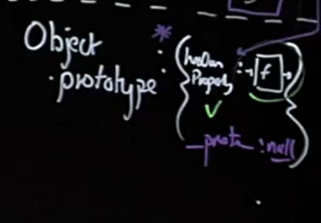 Object *
.prototype :
hasOwn
Property : f
__proto__ : null